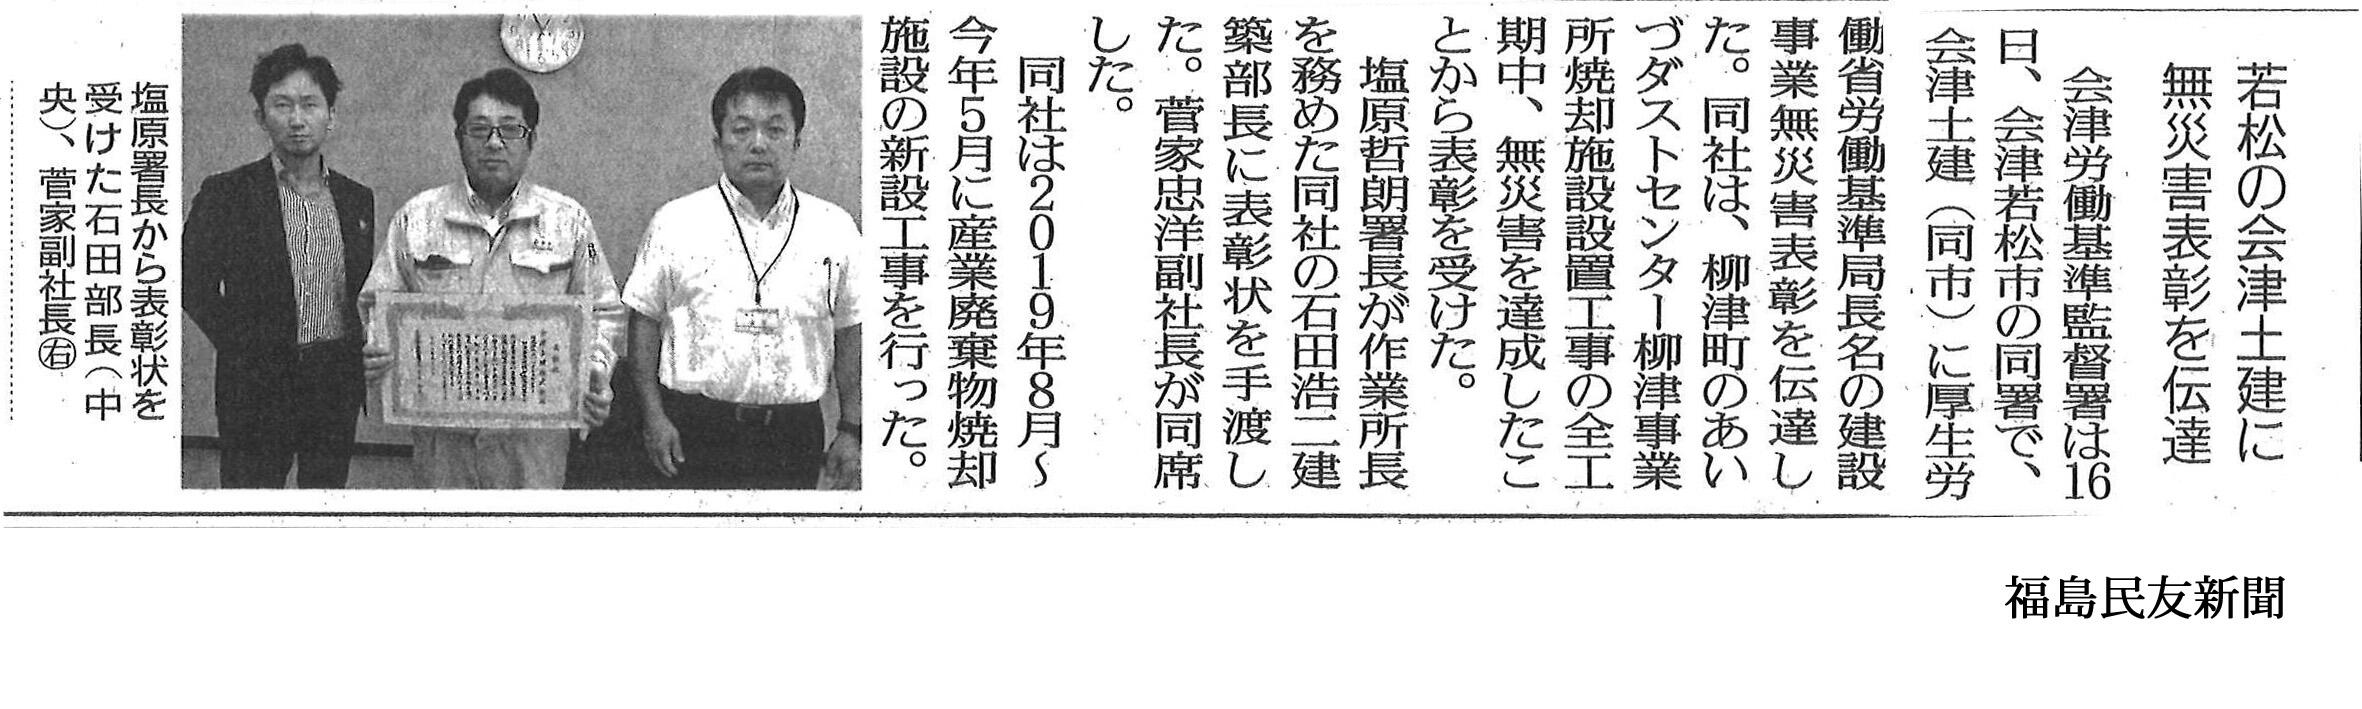 若松の会津土建に
無災害表彰を伝達
会津労働基準監督署は16
日、会津若松市の同署で、
会津土建（同市）に厚生労
働省労働基準局長名の建設
事業無災害表彰を伝達し
た。同社は、柳津町のあい
づダストセンター柳津事業
所焼却施設設置工事の全工
期中、無災害を達成したこ
とから表彰を受けた。
塩原哲朗署長が作業所長
を務めた同社の石田浩二建
築部長に表彰状を手渡し
た。菅家忠洋副社長が同席
した。
同社は2019年8月～
今年5月に産業廃棄物焼却
施設の新設工事を行った。
塩原署長から表彰状を
受けた石田部長（中
央）、菅家副社長㊨
福島民友新聞